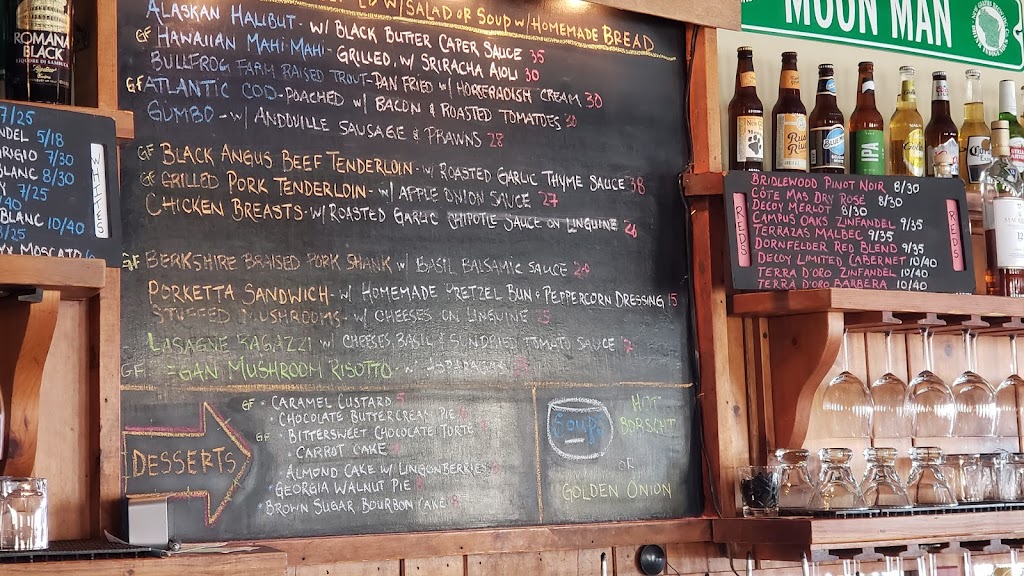 W/ SALAD OR SOUP W/ HOMEMADE BREAD
ALASKAN HALIBUT - W/ BLACK BUTTER CAPER SAUCE 35
GF HAWAIIAN MAHI-MAHI - GRILLED, W/ SRIRACHA AIOLI 30
BULLFROG FARM RAISED TROUT - PAN FRIED W/ HORSERADISH CREAM 30
GF ATLANTIC COD - POACHED W/ BACON & ROASTED TOMATOES 30
GUMBO - W/ ANDOUILLE SAUSAGE & PRAWNS 28
GF BLACK ANGUS BEEF TENDERLOIN - W/ ROASTED GARLIC THYME SAUCE 38
GF GRILLED PORK TENDERLOIN - W/ APPLE ONION SAUCE 27
CHICKEN BREASTS - W/ ROASTED GARLIC CHIPOTLE SAUCE ON LINGUINE 26
GF BERKSHIRE BRAISED PORK SHANK W/ BASIL BALSAMIC SAUCE
PORKETTA SANDWICH - W/ HOMEMADE PRETZEL BUN & PEPPERCORN DRESSING 15
STUFFED MUSHROOMS - W/ CHEESES, ON LINGUINE
LASAGNE RAGAZZI W/ CHEESES, BASIL & SUNDRIED TOMATO SAUCE
GF MUSHROOM RISOTTO - W/ ASPARAGUS
DESSERTS
GF • CARAMEL CUSTARD 5
• CHOCOLATE BUTTERCREAM PIE
GF • BITTERSWEET CHOCOLATE TORTE
• CARROT CAKE
ALMOND CAKE W/ LINGONBERRIES
• GEORGIA WALNUT PIE 8
• BROWN SUGAR BOURBON CAKE 8
SOUP
HOT
BORSCHT
OR
GOLDEN ONION
ROMANA
BLACK
LIQUORE DI SAMBUCA
7/25
5/18
7/30
BLANC 8/30
7/25
BLANC 10/40
8/25
MOSCATO
WHITES
MOON MAN
REDS
BRIDLEWOOD PINOT NOIR 8/30
CÔTE MAS DRY ROSÉ 8/30
DECOY MERLOT 8/30
CAMPUS OAKS ZINFANDEL 9/35
TERRAZAS MALBEC 9/35
DORNFELDER RED BLEND 9/35
DECOY LIMITED CABERNET 10/40
TERRA D'ORO ZINFANDEL 10/40
TERRA D'ORO BARBERA 10/40
REDS
IPA